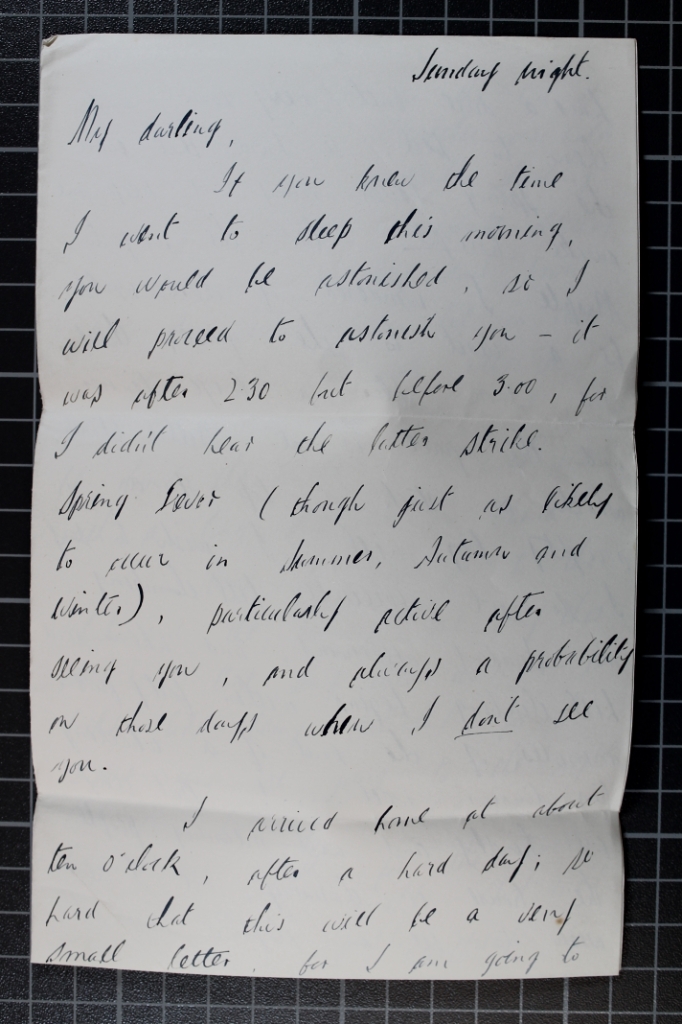 Sunday night.
My darling,
If you knew the time
I went to sleep this morning,
you would be astonished, so I
will proceed to astonish you – it
was after 2.30 but before 3.00, for
I didn't hear the latter strike.
Spring Fever (though just as likely
to occur in Summer, Autumn and
Winter), particularly active after
seeing you, and always a probability
on those days when I don't see
you.
I arrived home at about
ten o'clock, after a hard day; so
hard that this will be a very
small letter, for I am going to